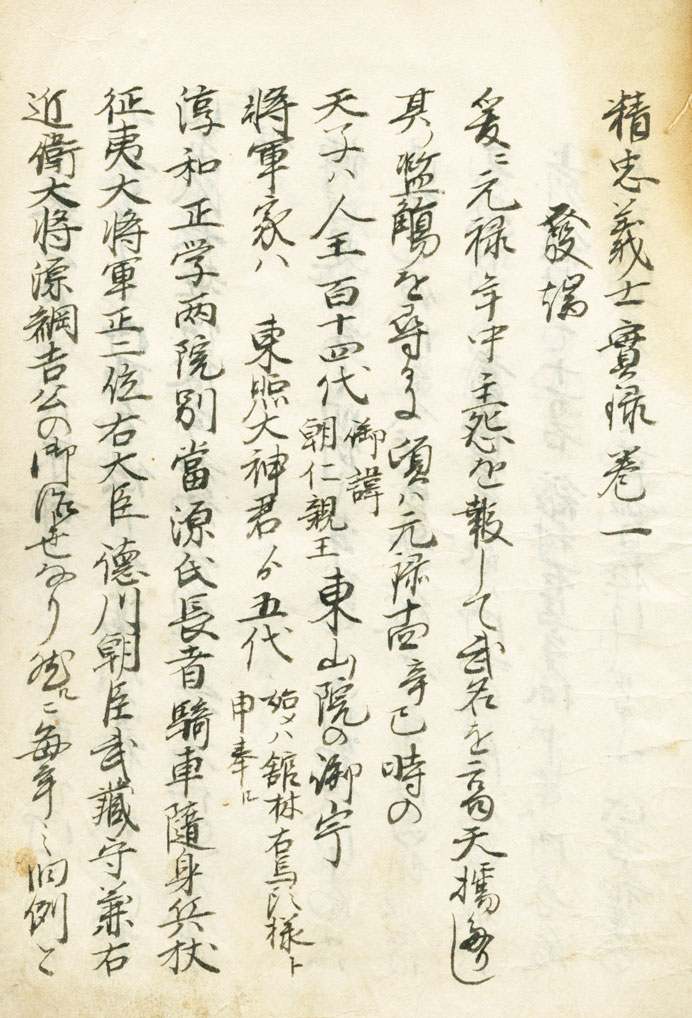 精忠義士實録巻一
發端
爰ニ元禄年中主怨を報して武名を高天播
其ノ濫觴を尋るに頃ハ元禄十四辛巳時の
天子ハ人王百十四代御諱朝仁親王東山院の御宇
將軍家ハ 東照大神君ゟ五代始メハ舘林右馬頭様ト申奉ル
淳和正学両院別當源氏長者騎車随身兵杖
征夷大将軍正二位右大臣德川朝臣武藏守兼右
近衛大将源綱吉公の御治世なり然ルニ毎年之旧例と